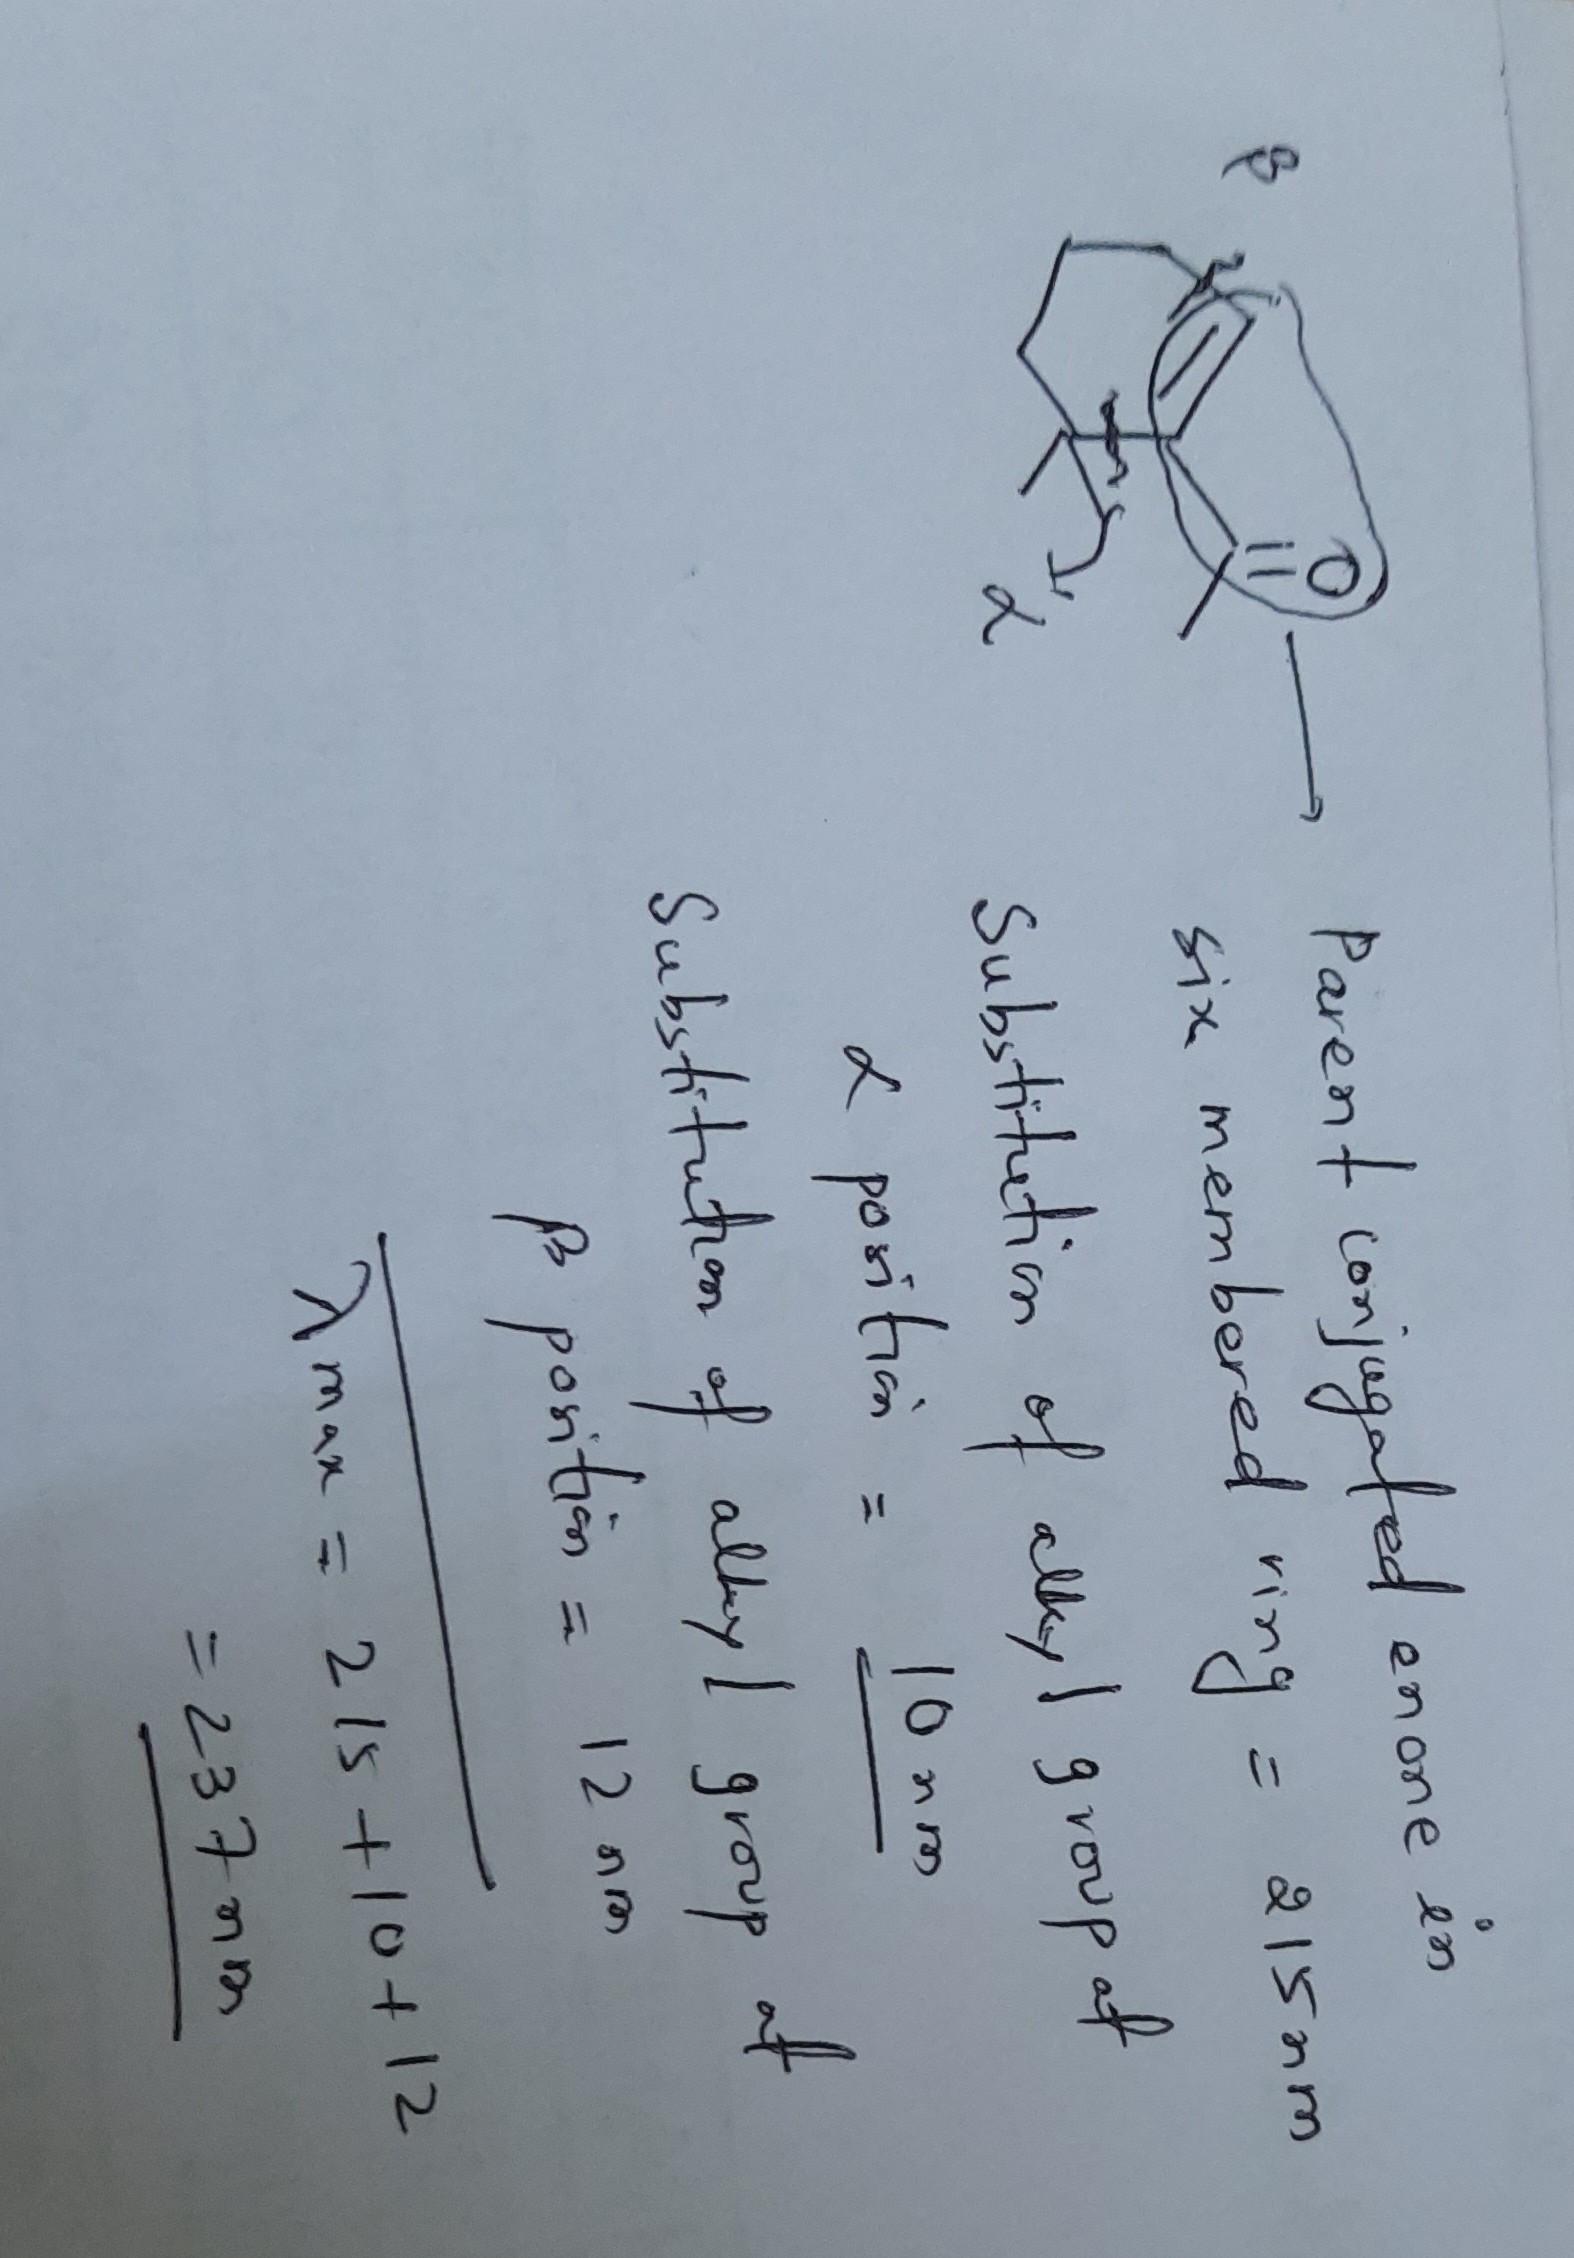 O
β
α
Parent conjugated enone in
six membered ring = 215nm
Substitution of alkyl group at
α position = 10nm
Substitution of alkyl group at
β position = 12nm
λmax = 215+10+12
= 237nm